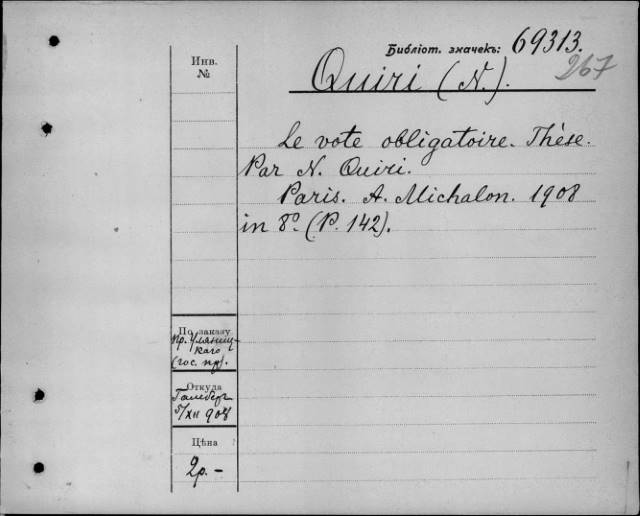 Библіот. значекъ: 69313.
267
Инв.
№
Quiri (N.).
Le vote obligatoire. Thèse.
Par N. Quiri.
Paris. A. Michalon. 1908
in 8º. (P. 142).
По заказу
пр. Уляниц-
каго
(гос. пр).
Откуда
5/XII 908
Цѣна
2р. -